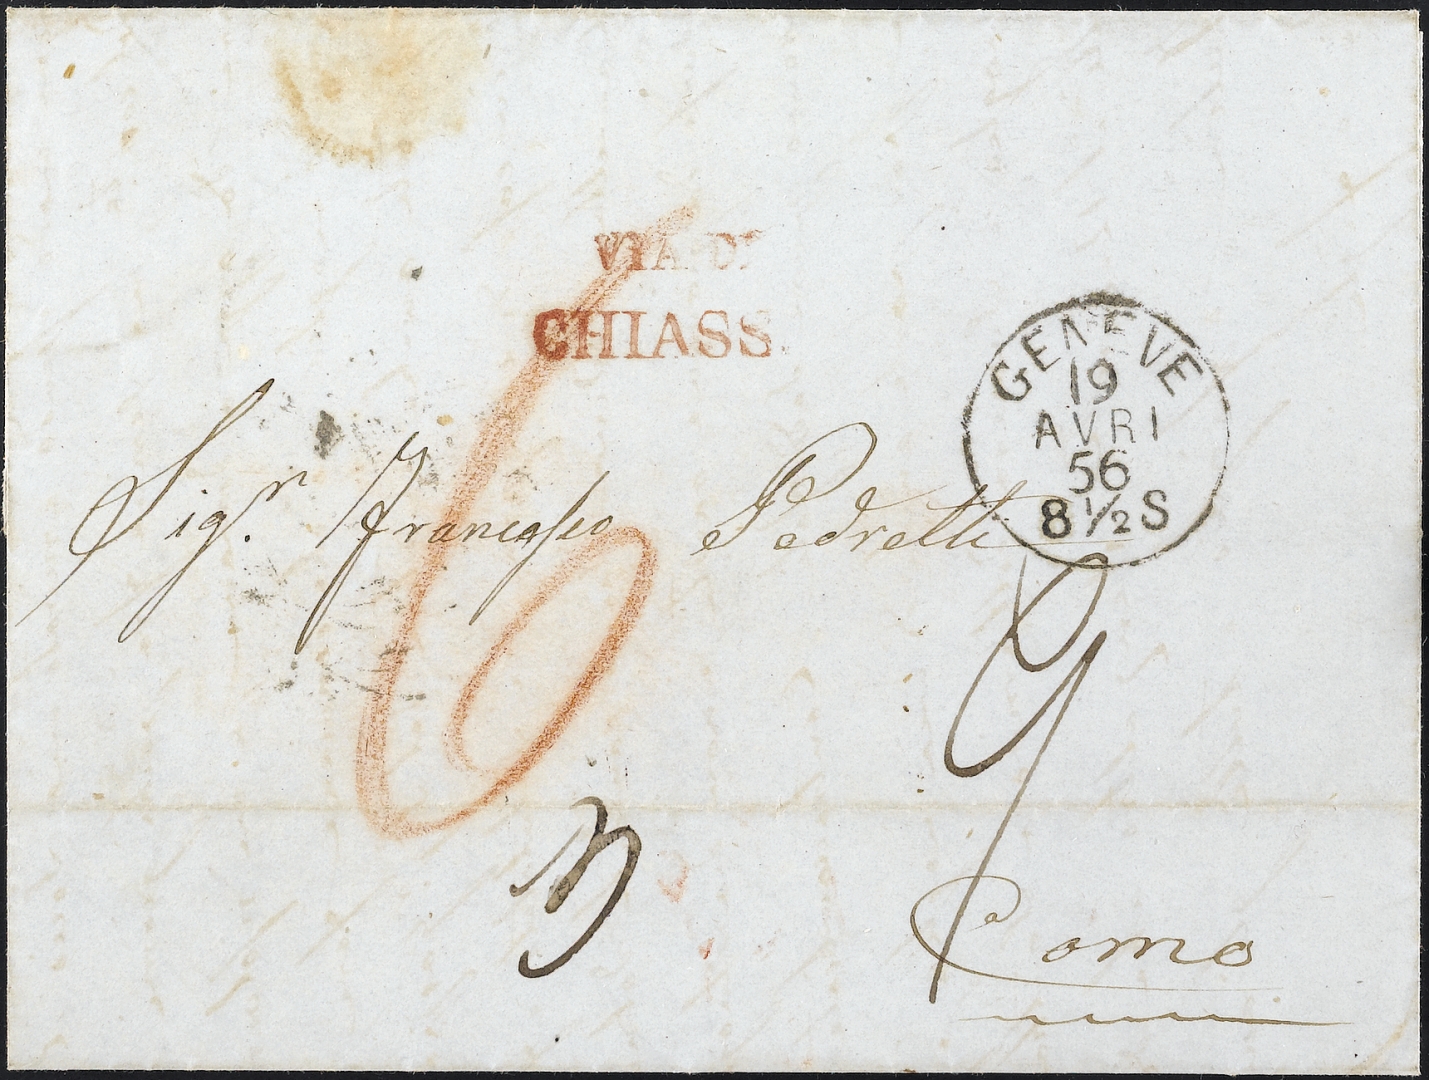 VIA DI
CHIASS
GENEVE
19
AVRI
56
8 1/2 S
6
Sig.r Francesco Pedretti
9
3
Como